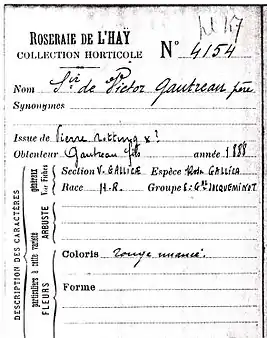 ROSERAIE DE L'HAŸ
COLLECTION HORTICOLE N° 4154
Nom Sir de Victor Gautreau père
Synonymes
Issue de Pierre Notting x ?
Obtenteur Gautreau fils année 1888
Section V. GALLICÆ Espèce Rosa GALLICA
Race H.R. Groupe E: Gal JACQUEMINOT
DESCRIPTION DES CARACTÈRES
particuliers à cette variété
généraux
Voir Fiches
ARBUSTE
FLEURS
Coloris rouge nuancé.
Forme